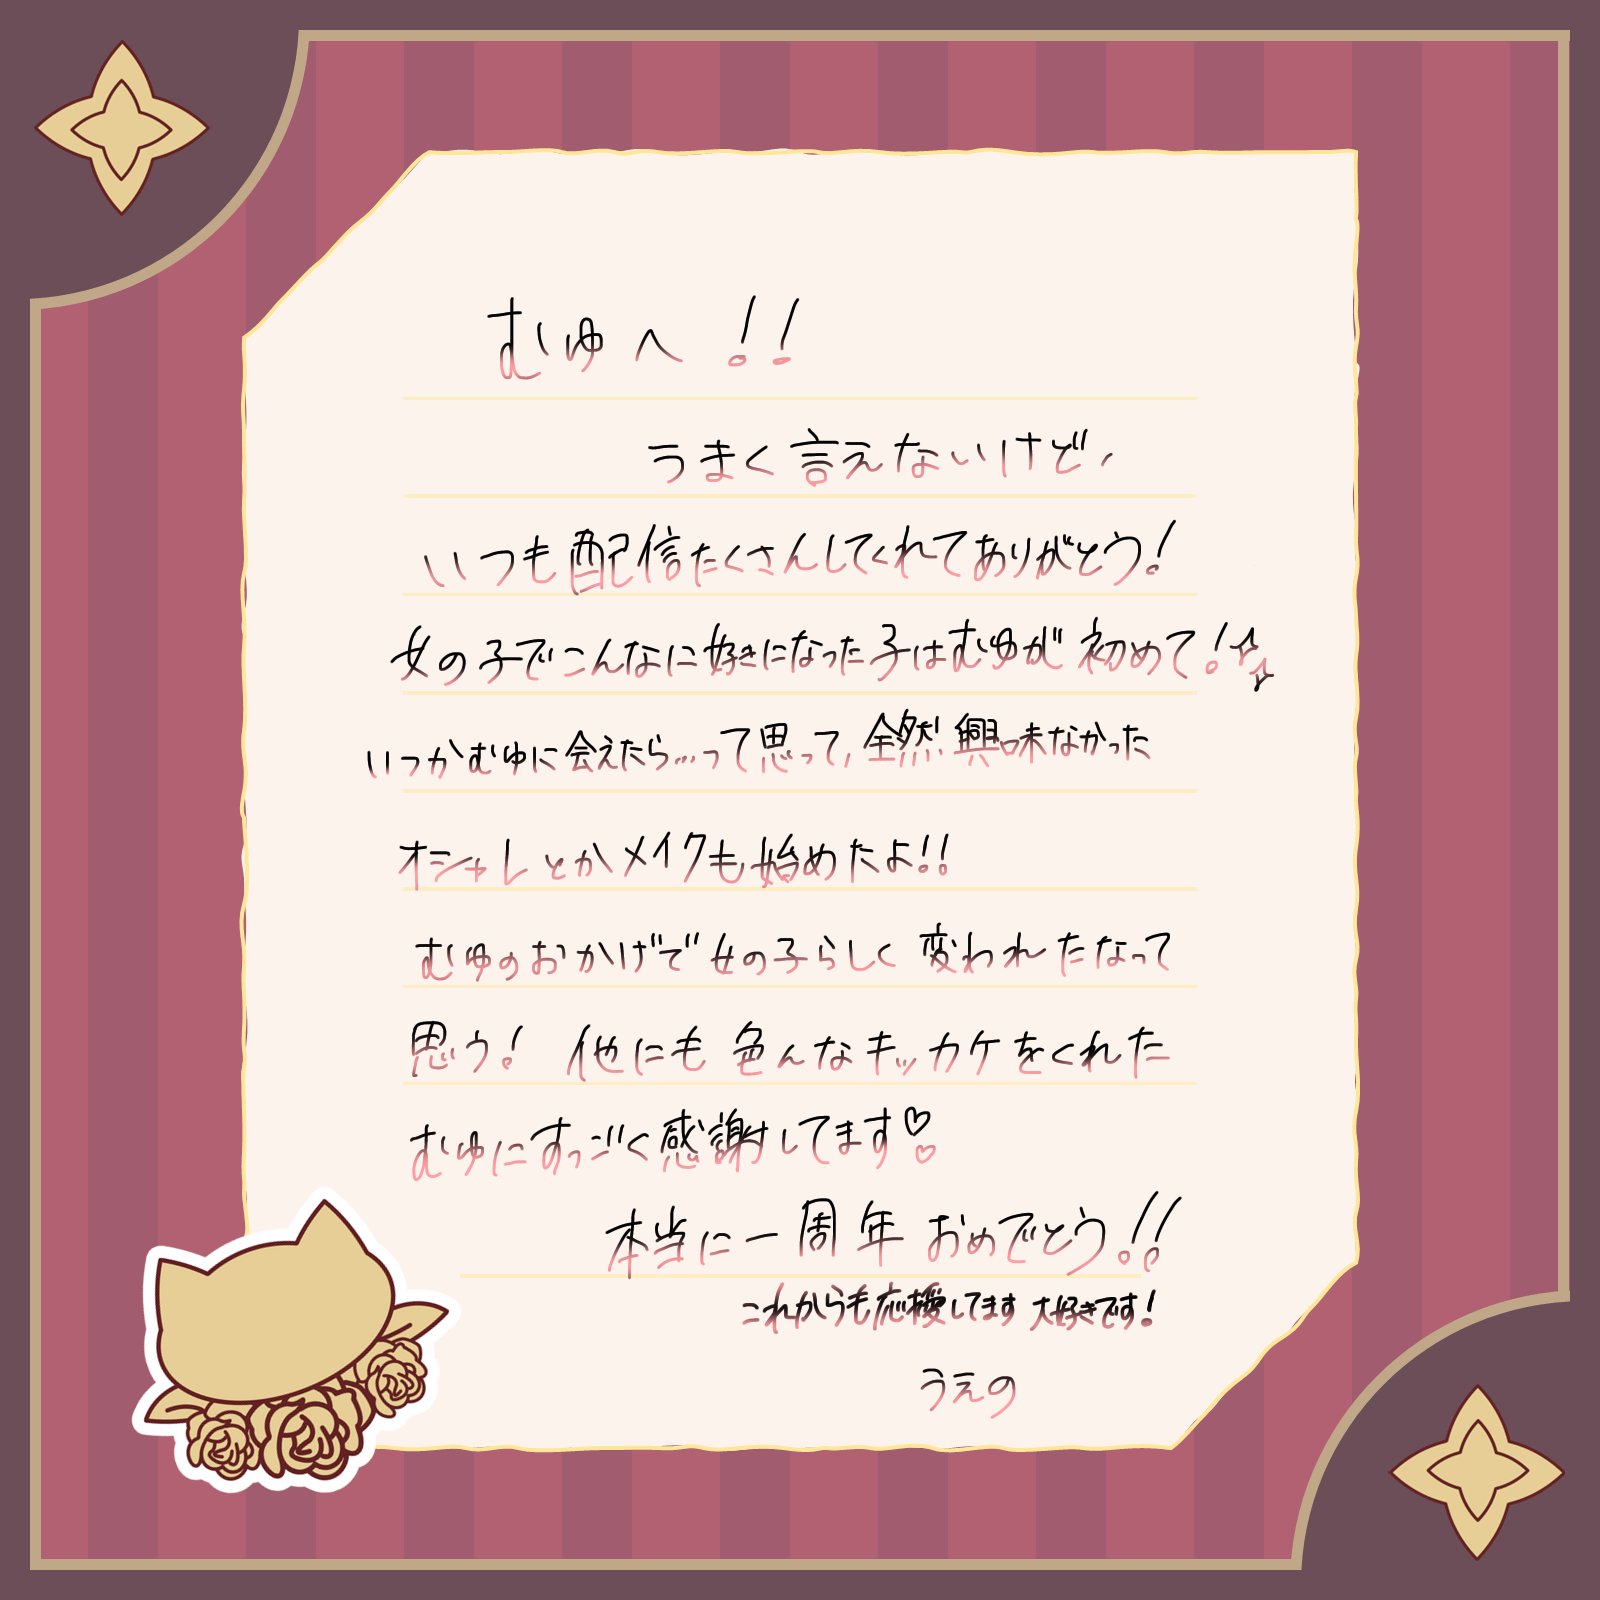 むゆへ!!
うまく言えないけど、
いつも配信たくさんしてくれてありがとう!
女の子でこんなに好きになった子はむゆが初めて!
いつかむゆに会えたら...って思って、全然興味なかった
オシャレとかメイクも始めたよ!!
むゆのおかげで女の子らしく変われたなって
思う! 他にも色んなキッカケをくれた
むゆにすっごく感謝してます♡♡
本当に一周年おめでとう!!
これからも応援してます 大好きです!
うえの